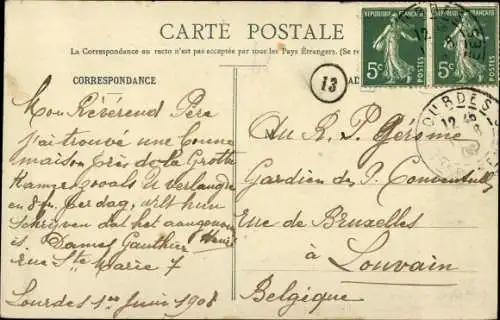 CARTE POSTALE
La Correspondance au recto n'est pas acceptée par tous les Pays Étrangers. (Se re
CORRESPONDANCE
AD
13
RÉPUBLIQUE FRANÇAISE
5c
POSTES
5c
POSTES
LOURDES
12
Mon Révérend Père
j'ai trouvé une bonne
maison près de la Grotte
U verlangde
en 8 fr. per dag, wilt hun
schrijven dat het aangenomen
is. Dames Gauthier
rue Ste Marie 7
Lourdes 1er Juin 1908
Au R. P. Gérôme
Gardien des P. Conventuels
Rue de Bruxelles
à Louvain
Belgique